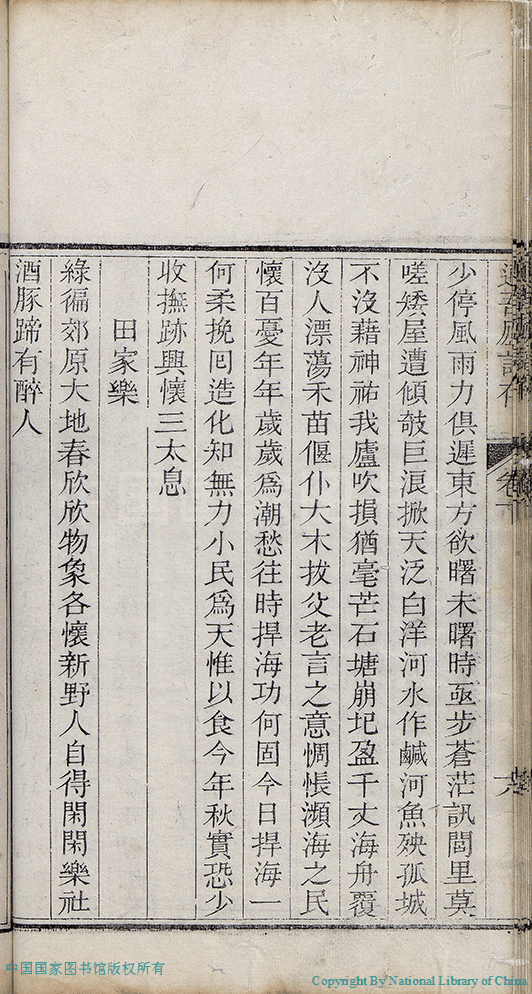 少停風雨力俱遲東方欲曙未曙時亟步蒼茫訊閭里莫
嗟矮屋遭傾攲巨浪掀天泛白洋河水作鹹河魚殃孤城
不沒藉神祐我廬吹損猶毫芒石塘崩圮盈千丈海舟覆
沒人漂蕩禾苗偃仆大木拔父老言之意惆悵瀕海之民
懷百憂年年歲歲爲潮愁往時捍海功何固今日捍海一
何柔挽囘造化知無力小民爲天惟以食今年秋實恐少
收撫跡興懷三太息
田家樂
綠徧郊原大地春欣欣物象各懷新野人自得閑閑樂社
酒豚蹄有醉人
中国国家图书馆版权所有
Copyright By National Library of China